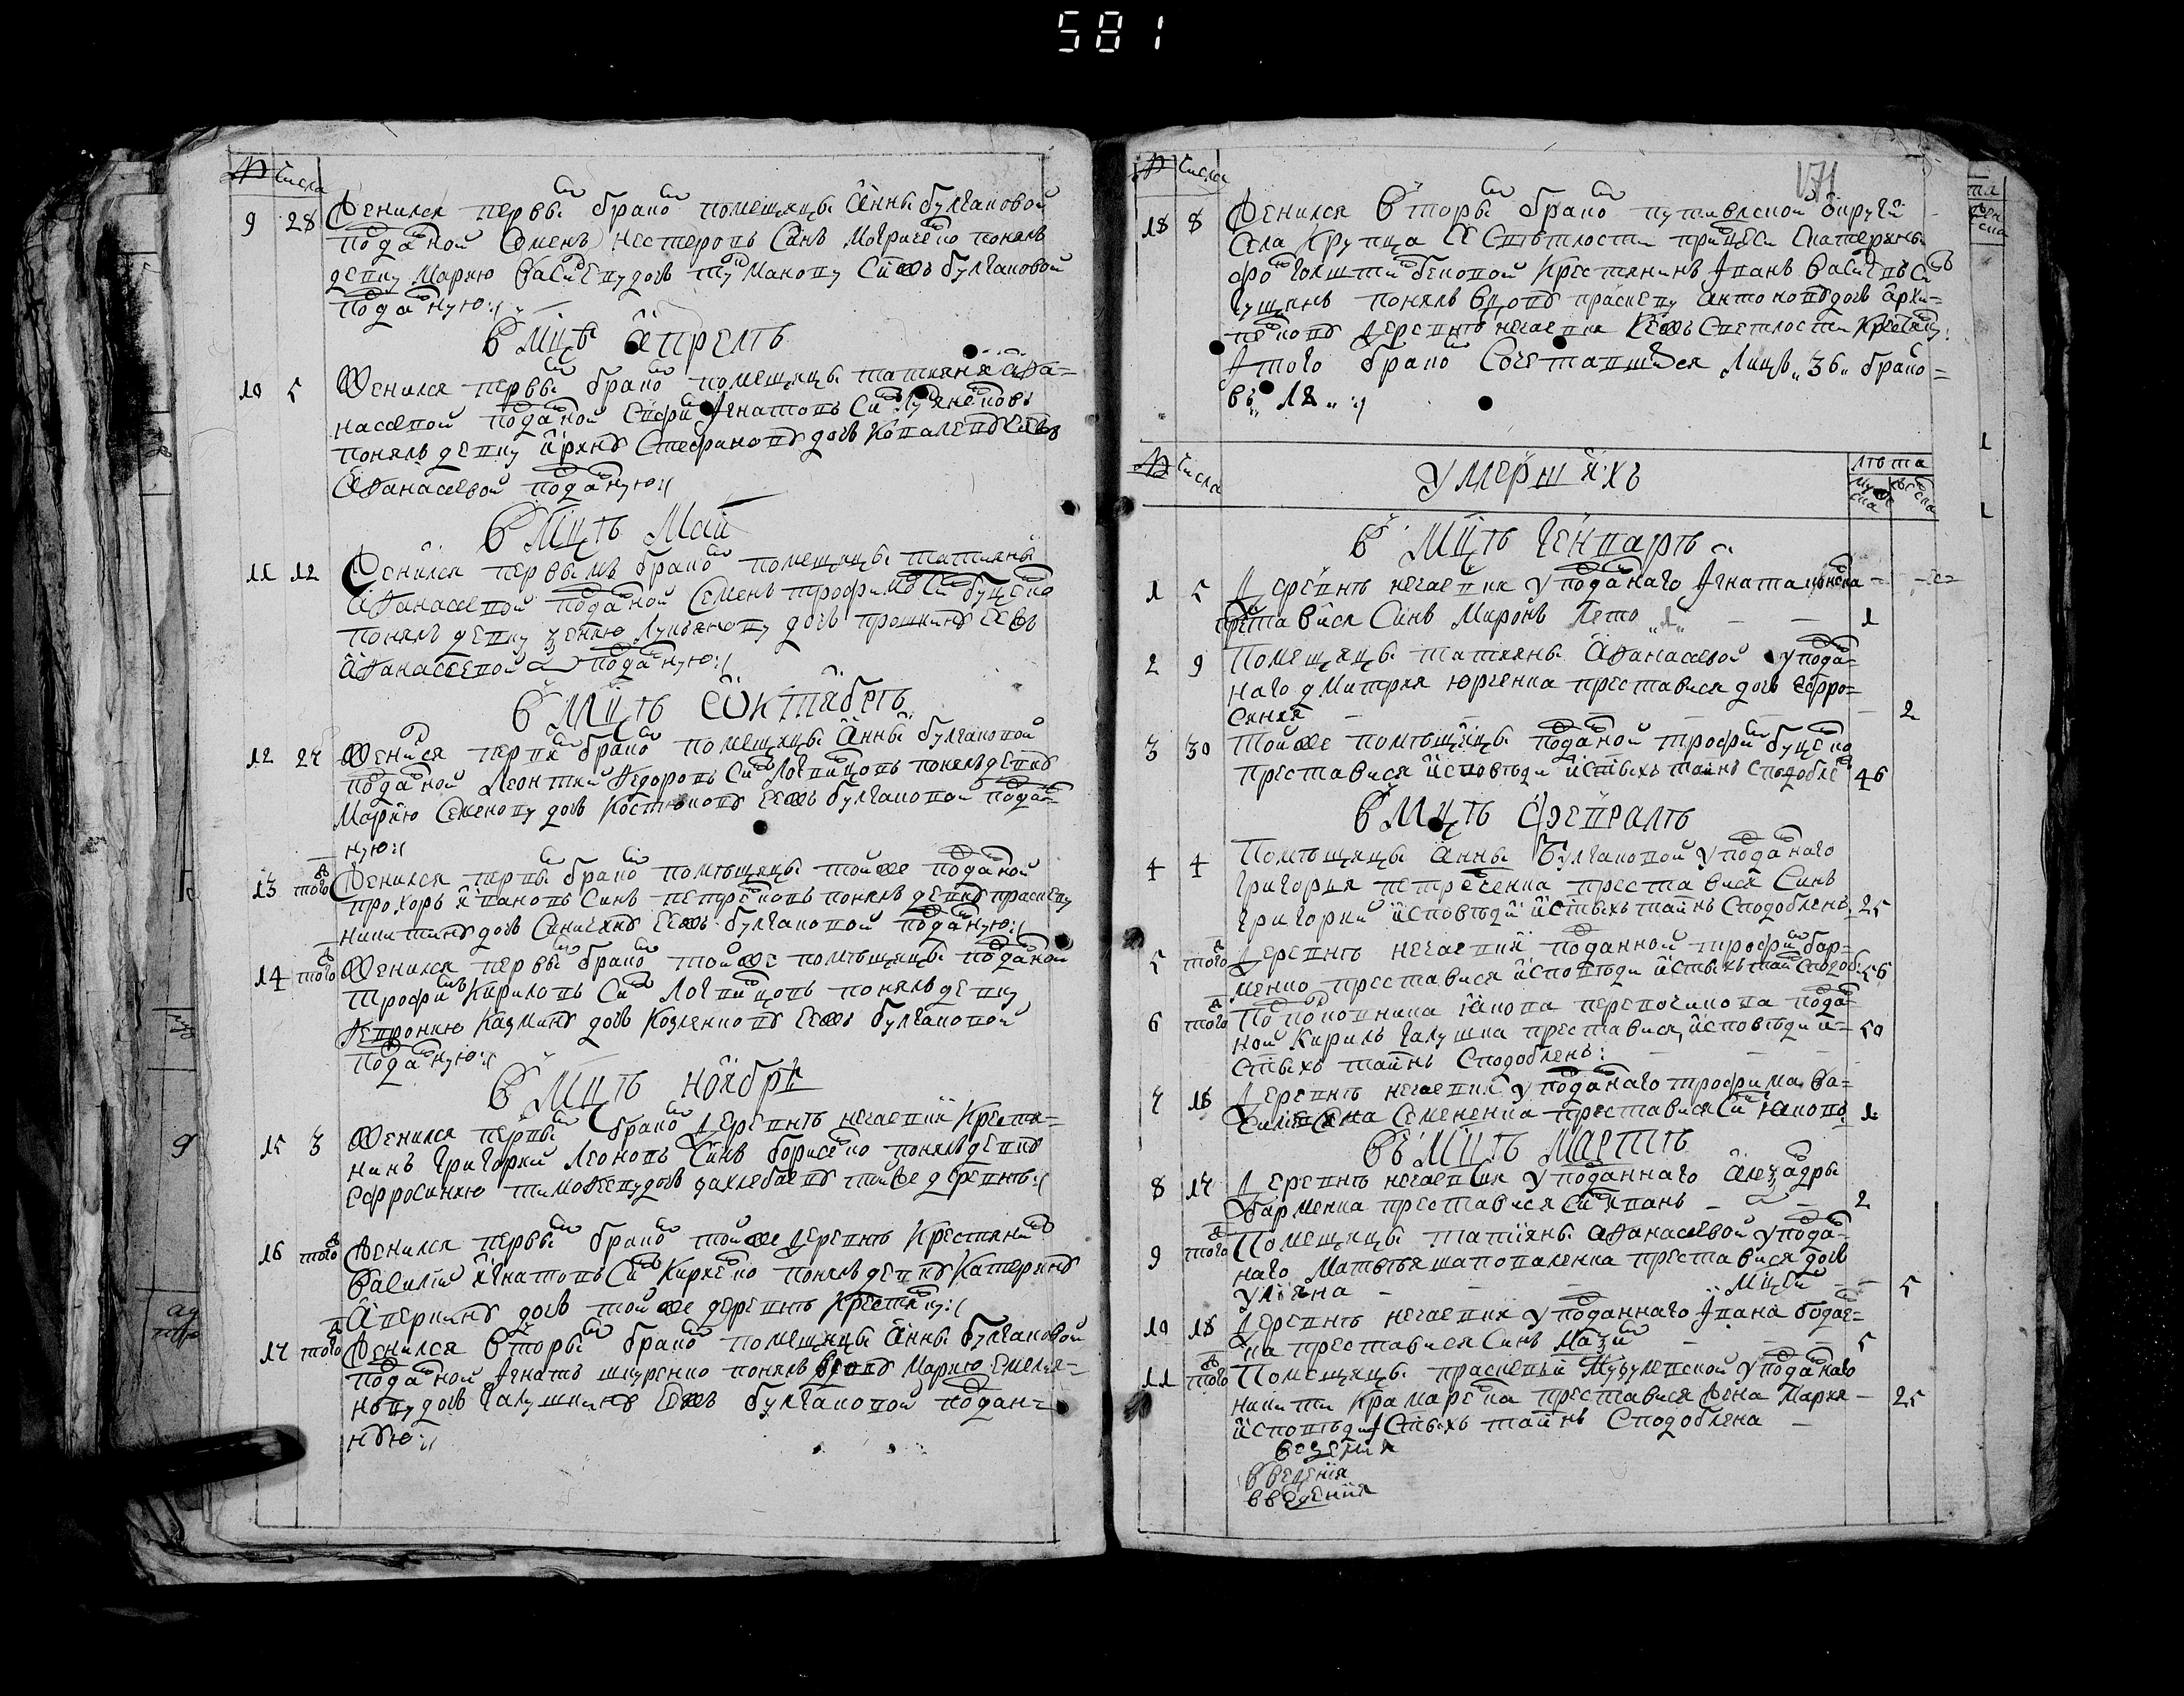 581
№ Числа
9 28 Женился первы брако помещицы Анны булгаковой
подданой Семенъ нестеровъ Сынъ Мокриченко понялъ
девку Марию Васильеву дочь туманову Сиежъ булгаковой
подданую:
В Мцѣ Апрелѣ
10 5 Женился первы брако помещицы татияни Афа=
насевой подданой Стефа Игнатовъ Си Лукяненковъ
понялъ девку Ирину Стефанову дочь Ковалеву Еежъ
Афанасевой подданую:
В Мцѣ Маи
11 12 Женился первымъ брако помещицы татияны
Афанасевой подданой Семенъ трофимо Си буценко
понялъ девку Лукьянову дочь прошкину Еежъ
Афанасевой подданую:
В Мцѣ Октябрѣ
12 27 Женися первы брако помещицы Анны булгаковой
подданой Леонтий Федоровъ Си Логвиновъ понялъ девку
Марию Семенову дочь Костюкову Еежъ булгаковой подда=
ную:
13 того Женился первы брако помѣщицы тойже подданой
прохоръ Ивановъ Синъ петренковъ понялъ девку праскеву
никитину дочь Синичину Еежъ булгаковой подданую:
14 того Женился первы брако тойже помѣщицы подданой
трофи Кириловъ Си Логвиновъ понялъ девку
Февронию Казмину дочь Козленкову Еежъ булгаковой
подданую:
В Мцѣ ноябрѣ
15 3 Женился первы брако деревнѣ нечаевки Крестя=
нинъ Григорий Леоновъ Синъ борисенко понялъ девку
Ефросинию тимофееву дочь захлебаеву тойже деревнѣ:
16 того Женился первы брако тойже деревнѣ Крестянинъ
Василий Игнатовъ Си Кириенко понялъ девку Катерину
Аверкину дочь тойже деревнѣ Крестянку:
17 того Женился Вторы брако помещицы Анны булгаковой
подданой Игнатъ шкуренко понялъ вдову Марию Емелия=
нову дочь Галушкину Еежъ булгаковой поддан=
ную:
171
№ Числа
18 8 Женился Вторы брако путивлской округи
Села Крупца Ее Свѣтлости принцеси Екатерины
фо голштинбековой Крестянинъ Иванъ Василевъ Сы
Гущинъ понялъ Вдову праскеву антонову дочь архи=
пенкову деревнѣ нечаевки Еежъ Светлости Крестянку:
Итого брако Сочетавшихся лицъ 36 брако=
въ 18
№ Числа Умершихъ лѣта
мужеска женска
В Мцѣ Генварѣ
1 5 деревнѣ нечаевки у подданаго Игната
престависа Синъ Миронъ лето 1 1
2 9 Помещицы татияны Афанасевой у подда=
наго дмитрия юрченка преставися дочь Ефро=
синия 2
3 30 тойже помѣщицы подданой трофи буценко
преставися исповѣди истыхъ таинъ сподоблен 46
В Мцѣ Февралѣ
4 4 Помѣщицы Анны Булгаковой у подданаго
григория петреченка преставися Синъ
григорий исповѣди истыхъ таинъ Сподобленъ 25
5 того деревнѣ нечаевки подданной трофи бар=
менко преставися исповѣди истыхъ тай Сподоб: 56
6 того Полковника Iякова перепочикова подда=
ной Кирилъ Галушка преставися исповѣди и=
Стыхъ таинъ Сподобленъ: 50
7 16 деревнѣ нечаевки у подданаго трофима Ва=
Семененка преставися Си Iяковъ 1
Въ Мцѣ Мартѣ
8 17 деревнѣ нечаевки у подданнаго Алезадры
барменка преставися Си Иванъ 2
9 того Помещицы татияны афанасевой у подда=
наго Матвѣя шаповаленка преставися дочь
Улияна Мцей 5
10 18 деревнѣ нечаевки у подданнаго Ивана бодаг=
ка преставися Синъ Мази 5
11 того Помещицы праскевьи у подданаго
никити Крамаренка преставися Жена Мария
исповѣди Стыхъ таинъ Сподоблена 25
введения
введения